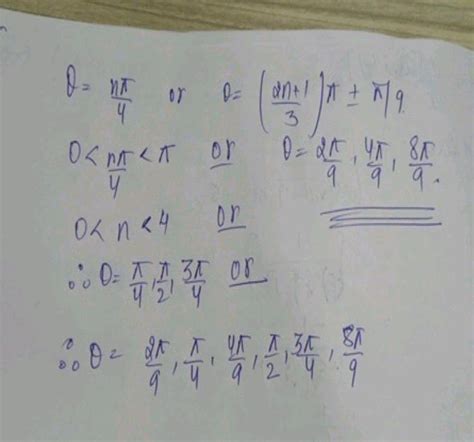 θ = nπ/4 or θ = (2n+1/3)π ± π/9
0 < nπ/4 < π or θ = 2π/9, 4π/9, 8π/9.
0 < n < 4 or
∴ θ = π/4, π/2, 3π/4 or
∴ θ = 2π/9, π/4, 4π/9, π/2, 3π/4, 8π/9